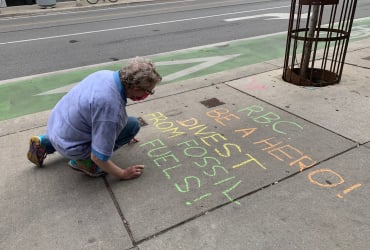 RBC
BE A HERO!
DIVEST
FROM FOSSIL
FUELS!!